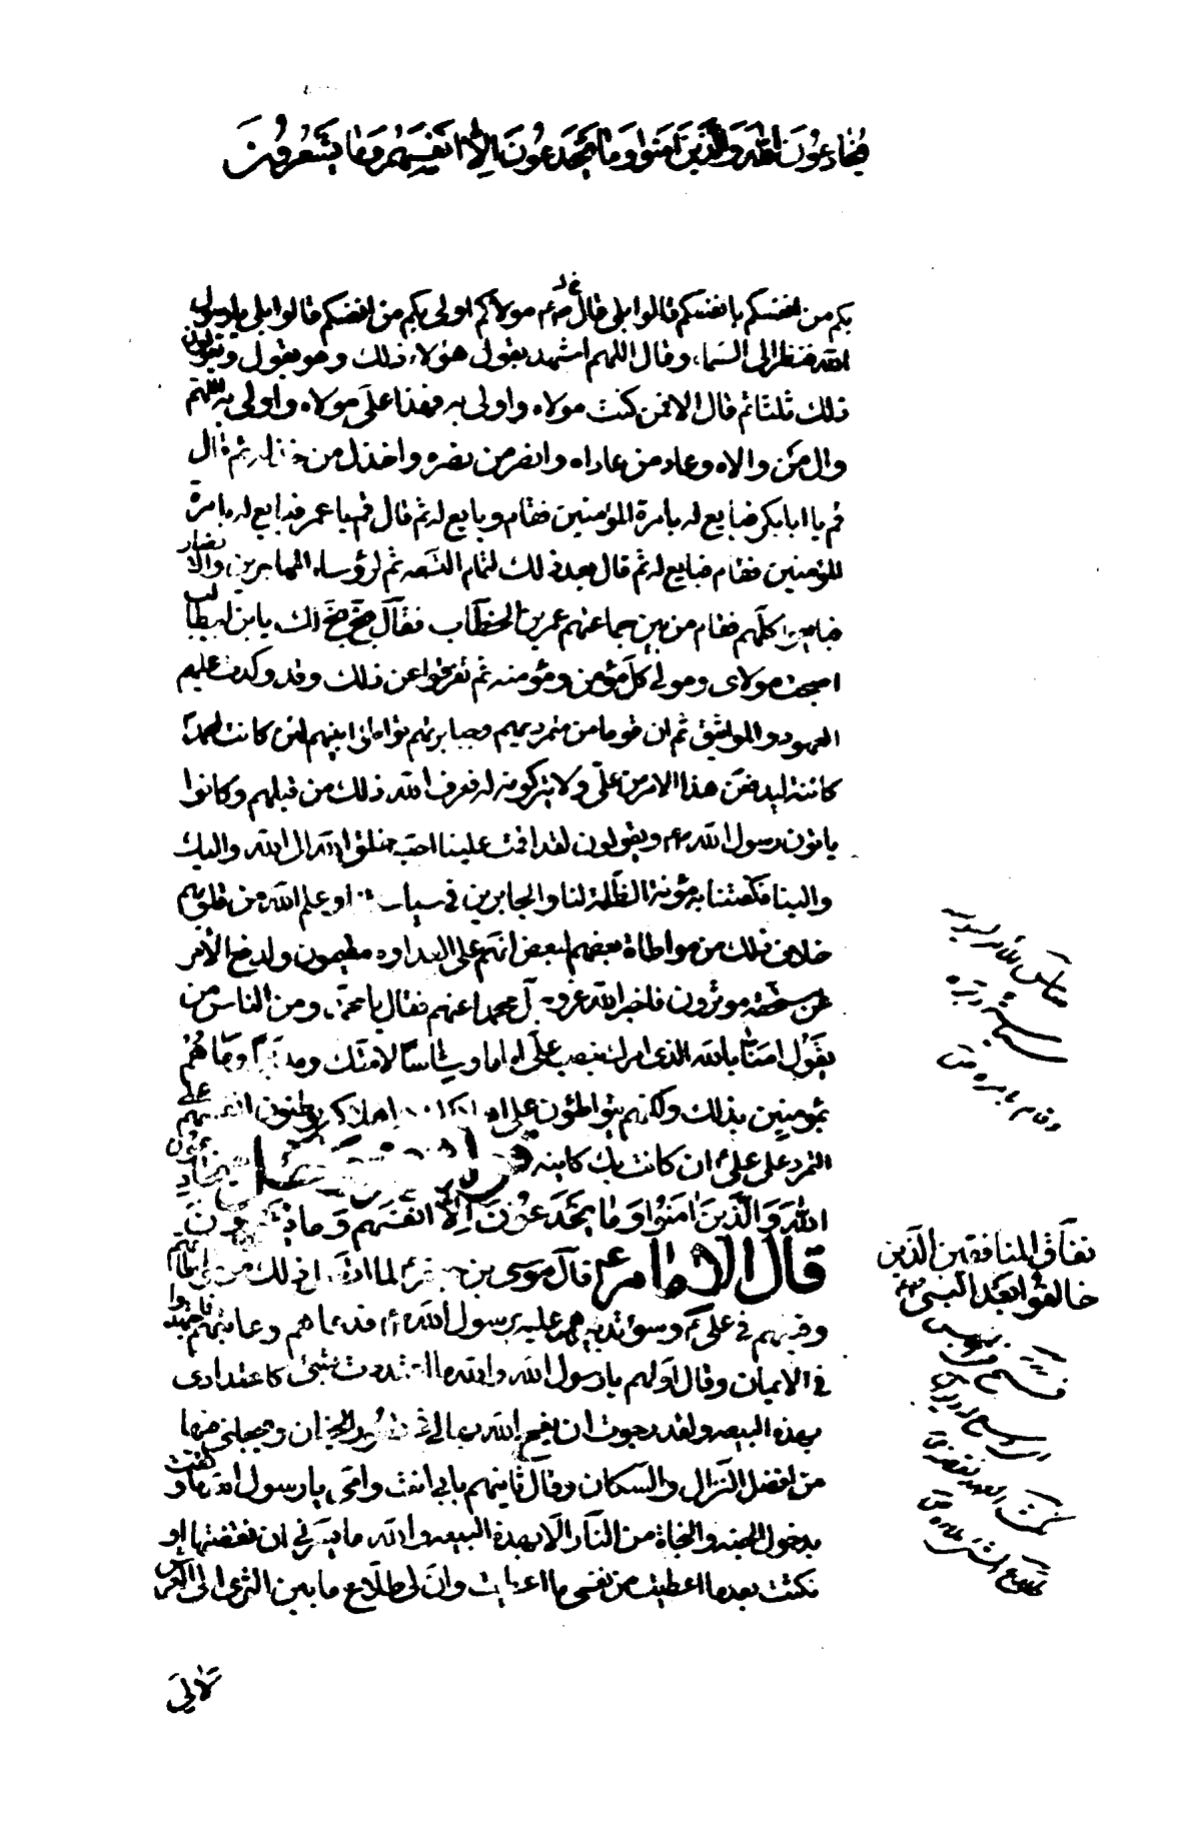 يخادعون الله والذين آمنوا وما يخدعون إلا أنفسهم وما يشعرون
بكم من انفسكم بانفسكم قالوا بلى قال ع مولاكم اولى بكم من انفسكم قالوا بلى يا رسول
الله فنظر الى السماء وقال اللهم اشهد بقول هؤلاء ذلك وهو يقول ويقولون
ذلك ثلثا ثم قال الا فمن كنت مولاه واولى به فهذا علي مولاه واولى به اللهم
وال من والاه وعاد من عاداه وانصر من نصره واخذل من خذله ثم قال
قم يا ابا بكر فبايع له بامرة المؤمنين فقام وبايع له ثم قال قم يا عمر فبايع له بامرة
المؤمنين فقام فبايع له ثم قال بعد ذلك لتمام التسعه ثم لرؤساء المهاجرين والانصار
فبايعوا كلهم فقام من بين جماعتهم عمر بن الخطاب فقال بخ بخ لك يا بن ابيطالب
اصبحت مولاى ومولى كل مؤمن ومؤمنه ثم تفرقوا عن ذلك وقد وكدت عليهم
العهود والمواثيق ثم ان قوما من متمرديهم وجبابرتهم تواطئوا بينهم لئن كانت لمحمد
كائنة ليدفعن هذا الامر من علي ولا يتركونه له فعرف الله ذلك من قبلهم وكانوا
ياتون رسول الله ص ويقولون لقد اقمت علينا احب خلق الله الى الله واليك
والينا فكفيتنا به مؤنة الظلمة لنا والجابرين في سيا وعلم الله من قلوبهم
خلاف ذلك من مواطاة بعضهم لبعض انهم على العداوه مقيمون ولدفع الامر
عن مستحقه موثرون فاخبر الله عز وجل محمدا عنهم فقال يا محمد ومن الناس من
يقول امنا بالله الذى امرك بنصب علي اماما وسائسا لامتك ومدبرا وما هم
بمومنين بذلك ولكنهم يتواطئون على اهلاكك يوطنون انفسهم على
التمرد على علي ان كانت بك كاينه قوله عز وجل يخادعون
الله والذين امنوا وما يخدعون إلا انفسهم وما يشعرون
قال الامام ع قال موسى بن جعفر لما اتصل ذلك من مواطاتهم
وقيلهم في علي وسوء تدبيرهم عليه برسول الله فدعاهم وعاتبهم فاجتهدوا
في الايمان وقال اولهم يا رسول الله والله ما اعتددت بشئ كاعتدادى
بهذه البيعه ولقد رجوت ان يفسح الله بها لي في قصور الجنان ويجعلني فيها
من افضل النزال والسكان وقال ثانيهم بابي انت وامى يا رسول الله ما وثقت
بدخول الجنه والنجاة من النار الا بهذه البيعه والله ما يسرني ان نقضتها او
نكثت بعد ما اعطيت من نفسى ما اعطيت وان لى طلاع ما بين الثرى الى العرش
نفاق المنافقين الذين
خالفوا بعد النبي
لآلي